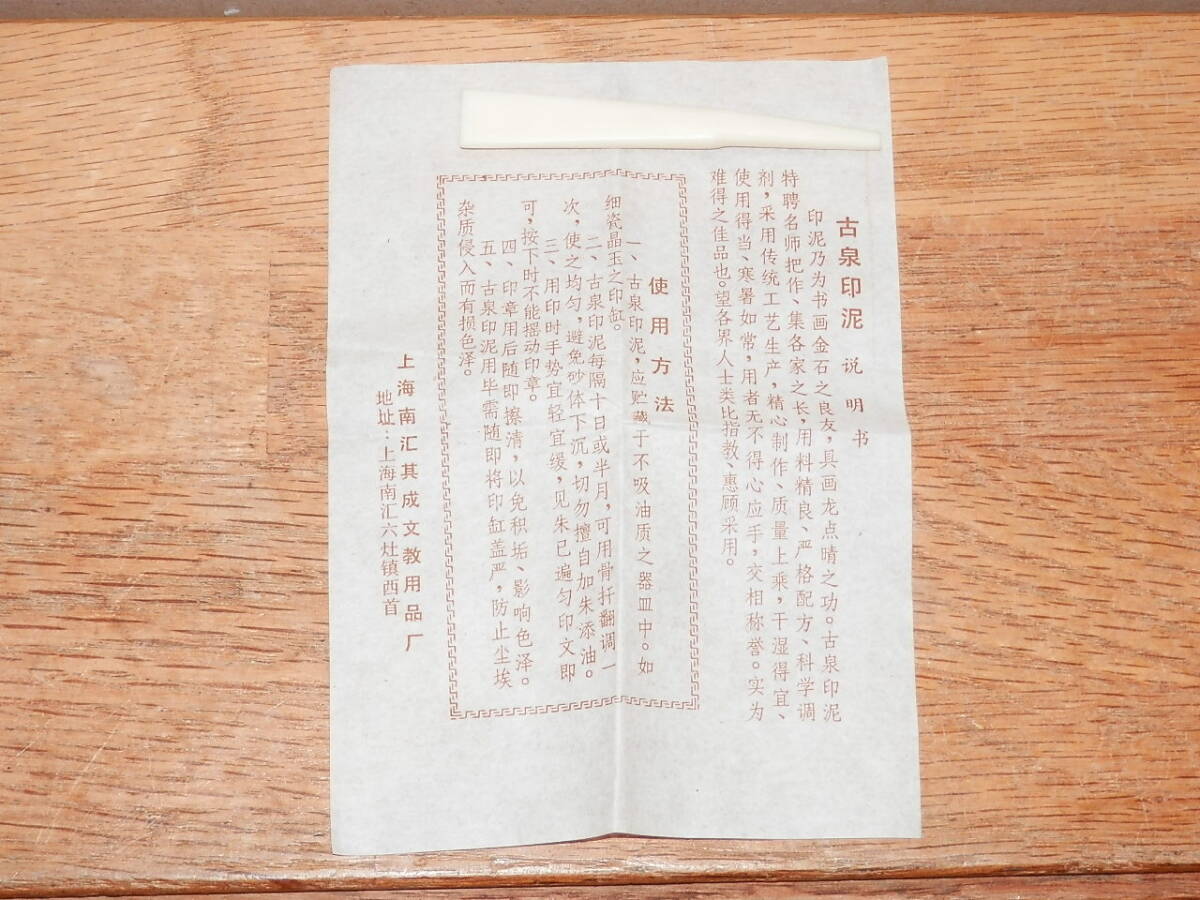 古泉印泥 说明书
印泥乃为书画金石之良友，具画龙点晴之功。古泉印泥
特聘名师把作、集各家之长，用料精良、严格配方、科学调
剂，采用传统工艺生产，精心制作、质量上乘，干湿得宜、
使用得当、寒暑如常，用者无不得心应手，交相称誉。实为
难得之佳品也。望各界人士类比指教、惠顾采用。
使用方法
一、古泉印泥，应贮藏于不吸油质之器皿中。如
细瓷晶玉之印缸。
二、古泉印泥每隔十日或半月，可用骨扦翻调一
次，使之均匀，避免砂体下沉，切勿擅自加朱添油。
三、用印时手势宜轻宜缓，见朱已遍匀印文即
可，按下时不能摇动印章。
四、印章用后随即擦清，以免积垢、影响色泽。
五、古泉印泥用毕需随即将印缸盖严，防止尘埃
杂质侵入而有损色泽。
上海南汇其成文教用品厂
地址：上海南汇六灶镇西首